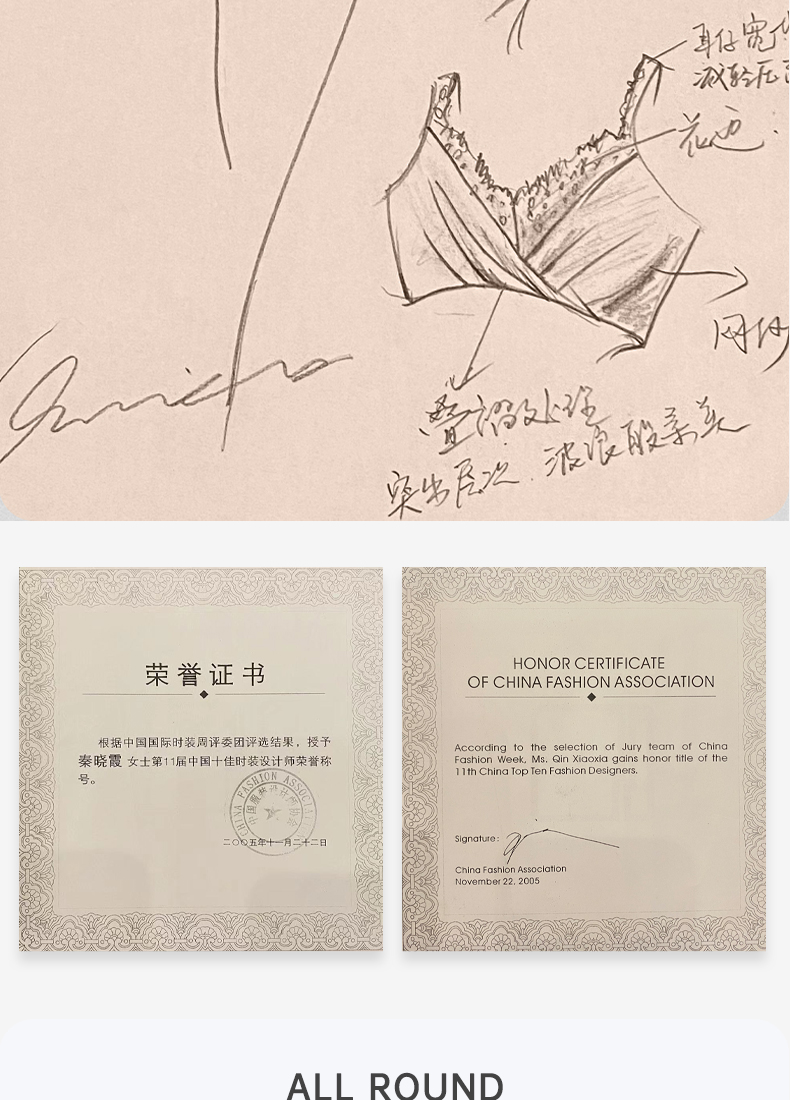 耳仔宽
减轻压
花边.
网纱
叠褶处理
突出层次. 波浪般柔美
荣誉证书
根据中国国际时装周评委团评选结果，授予
秦晓霞 女士第11届中国十佳时装设计师荣誉称
号。
CHINA FASHION ASSOCIATION
中国服装设计师协会
二〇〇五年十一月二十二日
HONOR CERTIFICATE
OF CHINA FASHION ASSOCIATION
According to the selection of Jury team of China
Fashion Week, Ms. Qin Xiaoxia gains honor title of the
11th China Top Ten Fashion Designers.
Signature:
China Fashion Association
November 22, 2005
ALL ROUND